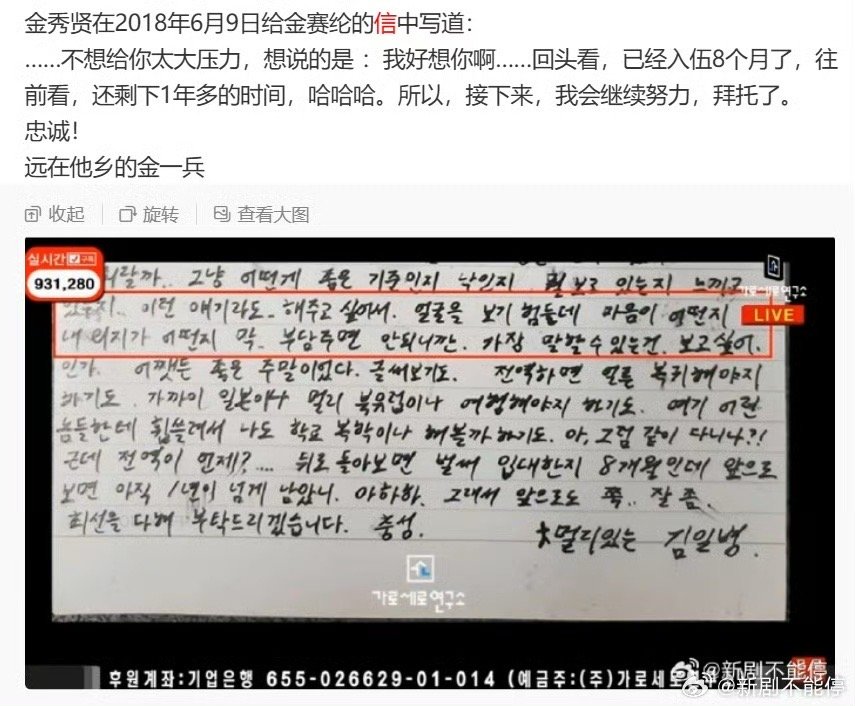 金秀贤在2018年6月9日给金赛纶的信中写道：
……不想给你太大压力，想说的是 ：我好想你啊……回头看，已经入伍8个月了，往
前看，还剩下1年多的时间，哈哈哈。所以，接下来，我会继续努力，拜托了。
忠诚！
远在他乡的金一兵
收起 旋转 查看大图
실시간 구독
931,280
그냥 어떻게 좋은 기준인지 낙인지 뭘 보고 있는지 느끼고
가로세로연구소
LIVE
이런 얘기라도.. 해주고 싶어서. 얼굴을 보기 힘들데 마음이 어떤지
내 의지가 어떤지 막. 부담주면 안되니깐. 가장 말할 수 있는건. 보고싶어.
인가. 어쨋든 좋은 주말이었다. 글써보기도. 전역하면 얼른 복귀해야지
하기도. 가까이 일본이나 멀리 북유럽이나 여행해야지 하기도. 여기 어린
놈들한테 휩쓸려서 나도 학교 복학이나 해볼까 하기도. 아, 그럼 같이 다니나?!
근데 전역이 언제?.... 뒤로 돌아보면 벌써 입대한지 8개월인데 앞으로
보면 아직 1년이 넘게 남았니. 아하하. 그래서 앞으로도 쭉. 잘 좀.
최선을 다해 부탁드리겠습니다. 충성.
멀리있는 김일병.
가로세로연구소
후원계좌:기업은행 655-026629-01-014 (예금주:(주)가로세로
@新剧不能停
@新剧不能停